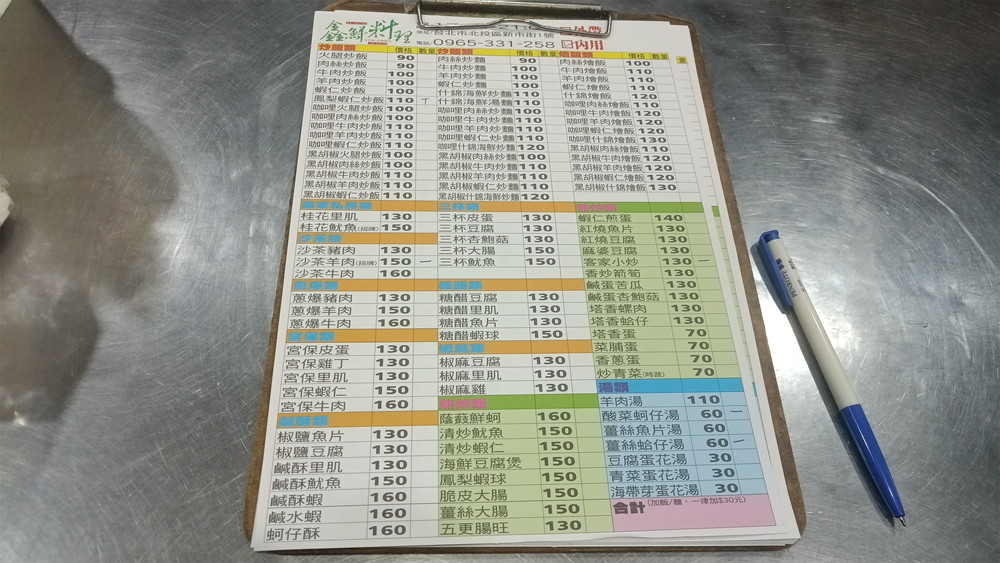 鑫鮮料理
台北市北投區新市街1號
電話:0965-331-258 ☑內用
炒飯類 價格 數量
火腿炒飯 90
肉絲炒飯 90
牛肉炒飯 100
羊肉炒飯 100
蝦仁炒飯 100
鳳梨蝦仁炒飯 110
咖哩火腿炒飯 100
咖哩肉絲炒飯 100
咖哩牛肉炒飯 110
咖哩羊肉炒飯 110
咖哩蝦仁炒飯 110
黑胡椒火腿炒飯 100
黑胡椒肉絲炒飯 100
黑胡椒牛肉炒飯 110
黑胡椒羊肉炒飯 110
黑胡椒蝦仁炒飯 110
炒麵類 價格 數量
肉絲炒麵 90
牛肉炒麵 100
羊肉炒麵 100
蝦仁炒麵 100
什錦海鮮炒麵 110
什錦海鮮湯麵 110
咖哩肉絲炒麵 100
咖哩牛肉炒麵 110
咖哩羊肉炒麵 110
咖哩蝦仁炒麵 110
咖哩什錦海鮮炒麵 120
黑胡椒肉絲炒麵 100
黑胡椒牛肉炒麵 110
黑胡椒羊肉炒麵 110
黑胡椒蝦仁炒麵 110
黑胡椒什錦海鮮炒麵 120
燴飯類 價格 數量
肉絲燴飯 100
牛肉燴飯 110
羊肉燴飯 110
蝦仁燴飯 110
什錦燴飯 120
咖哩肉絲燴飯 110
咖哩牛肉燴飯 120
咖哩羊肉燴飯 120
咖哩蝦仁燴飯 120
咖哩什錦燴飯 130
黑胡椒肉絲燴飯 110
黑胡椒牛肉燴飯 120
黑胡椒羊肉燴飯 120
黑胡椒蝦仁燴飯 120
黑胡椒什錦燴飯 130
桂花里肌 130
桂花魷魚(招牌) 150
沙茶類
沙茶豬肉 130
沙茶羊肉(招牌) 150 一
沙茶牛肉 160
蔥爆類
蔥爆豬肉 130
蔥爆羊肉 150
蔥爆牛肉 160
宮保類
宮保皮蛋 130
宮保雞丁 130
宮保里肌 130
宮保蝦仁 150
宮保牛肉 160
椒鹽魚片 130
椒鹽豆腐 130
鹹酥里肌 130
鹹酥魷魚 150
鹹酥蝦 160
鹹水蝦 160
蚵仔酥 160
三杯類
三杯皮蛋 130
三杯豆腐 130
三杯杏鮑菇 130
三杯大腸 150
三杯魷魚 150
糖醋類
糖醋豆腐 130
糖醋里肌 130
糖醋魚片 130
糖醋蝦球 150
椒麻類
椒麻豆腐 130
椒麻里肌 130
椒麻雞 130
蔭豉鮮蚵 160
清炒魷魚 150
清炒蝦仁 150
海鮮豆腐煲 150
鳳梨蝦球 150
脆皮大腸 150
薑絲大腸 150
五更腸旺 130
蝦仁煎蛋 140
紅燒魚片 130
紅燒豆腐 130
麻婆豆腐 130
客家小炒 130 一
香炒箭筍 130
鹹蛋苦瓜 130
鹹蛋杏鮑菇 130
塔香螺肉 130
塔香蛤仔 130
塔香蛋 70
菜脯蛋 70
香蔥蛋 70
炒青菜(時蔬) 70
湯類
羊肉湯 110
酸菜蚵仔湯 60 一
薑絲魚片湯 60
薑絲蛤仔湯 60 一
豆腐蛋花湯 30
青菜蛋花湯 30
海帶芽蛋花湯 30
合計 (加飯/麵,一律加$30元)
PENROTE